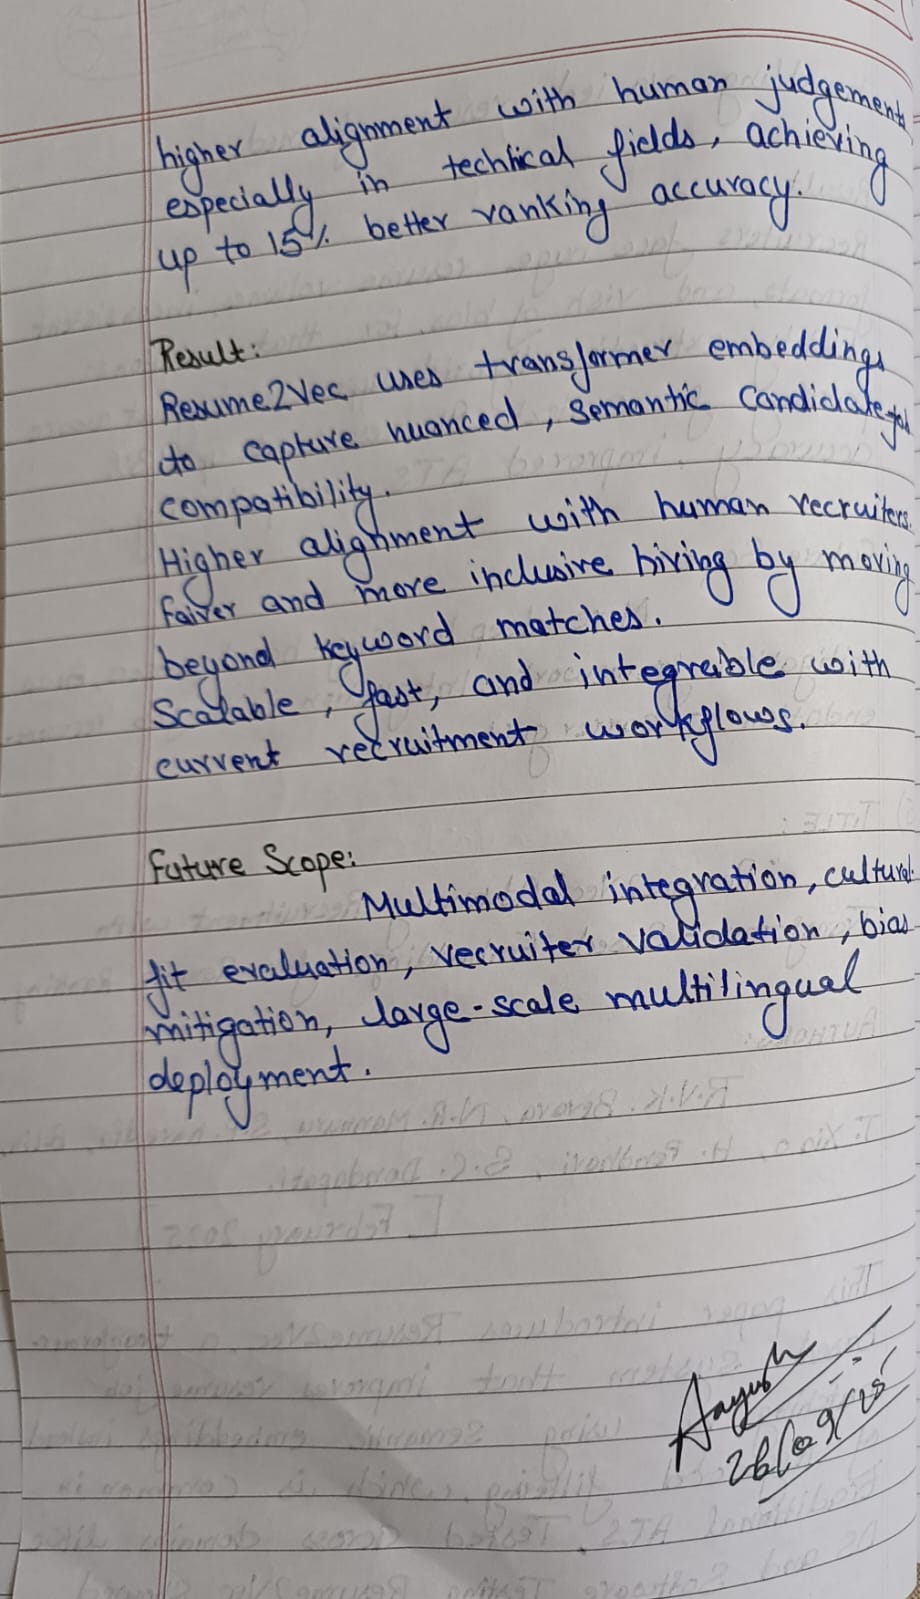 higher alignment with human judgement
especially in technical fields, achieving
up to 15% better ranking accuracy.
Result:
Resume2Vec uses transformer embeddings
to capture nuanced, semantic candidate-job
compatibility.
Higher alignment with human recruiters.
Fairer and more inclusive hiring by moving
beyond keyword matches.
Scalable, fast, and integrable with
current recruitment workflows.
Future Scope:
Multimodal integration, cultural
fit evaluation, recruiter validation, bias
mitigation, large-scale multilingual
deployment.
Aayush
26/09/25